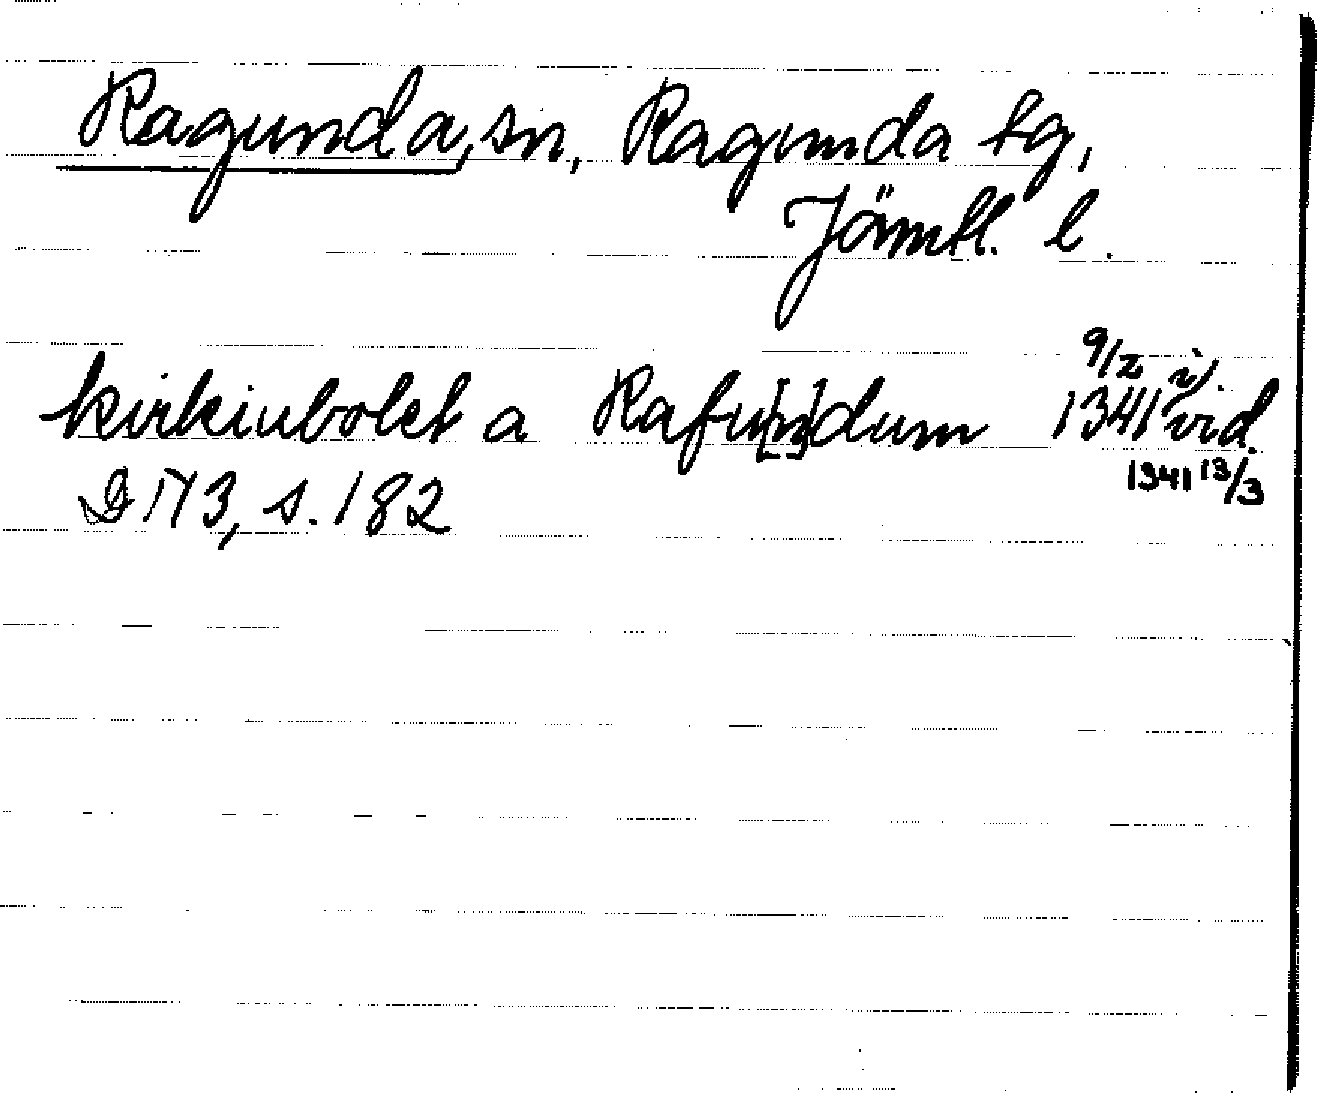 Ragunda, sn, Ragunda tg,
Jämtl. l.
kirkiubolet a Rafu[n]dum 9/2 1341 i vid.
1341 13/3
DN 3, s. 182